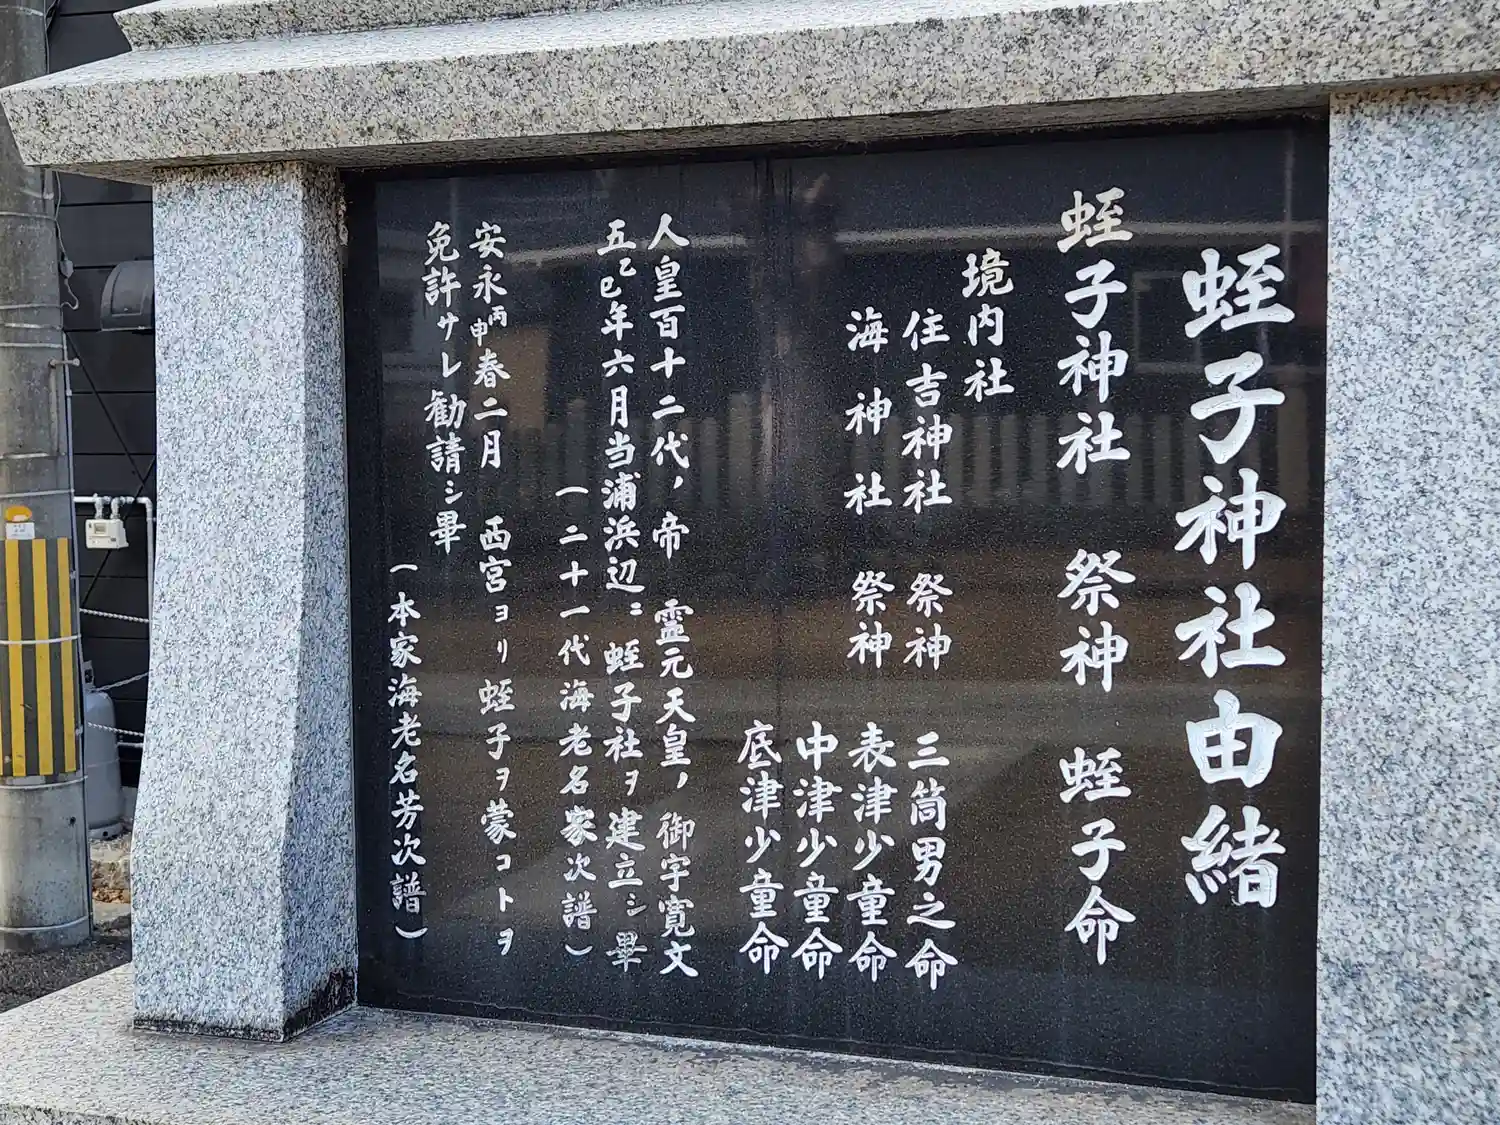 蛭子神社由緒
蛭子神社 祭神 蛭子命
境内社
住吉神社 祭神 三筒男之命
海神社 祭神 表津少童命
中津少童命
底津少童命
人皇百十二代、帝 霊元天皇、御宇寛文
五乙巳年六月当浦浜辺ニ蛭子社ヲ建立シ畢
(二十一代海老名家次譜)
安永丙申春二月 西宮ヨリ蛭子ヲ蒙コトヲ
免許サレ勧請シ畢
(本家海老名芳次譜)